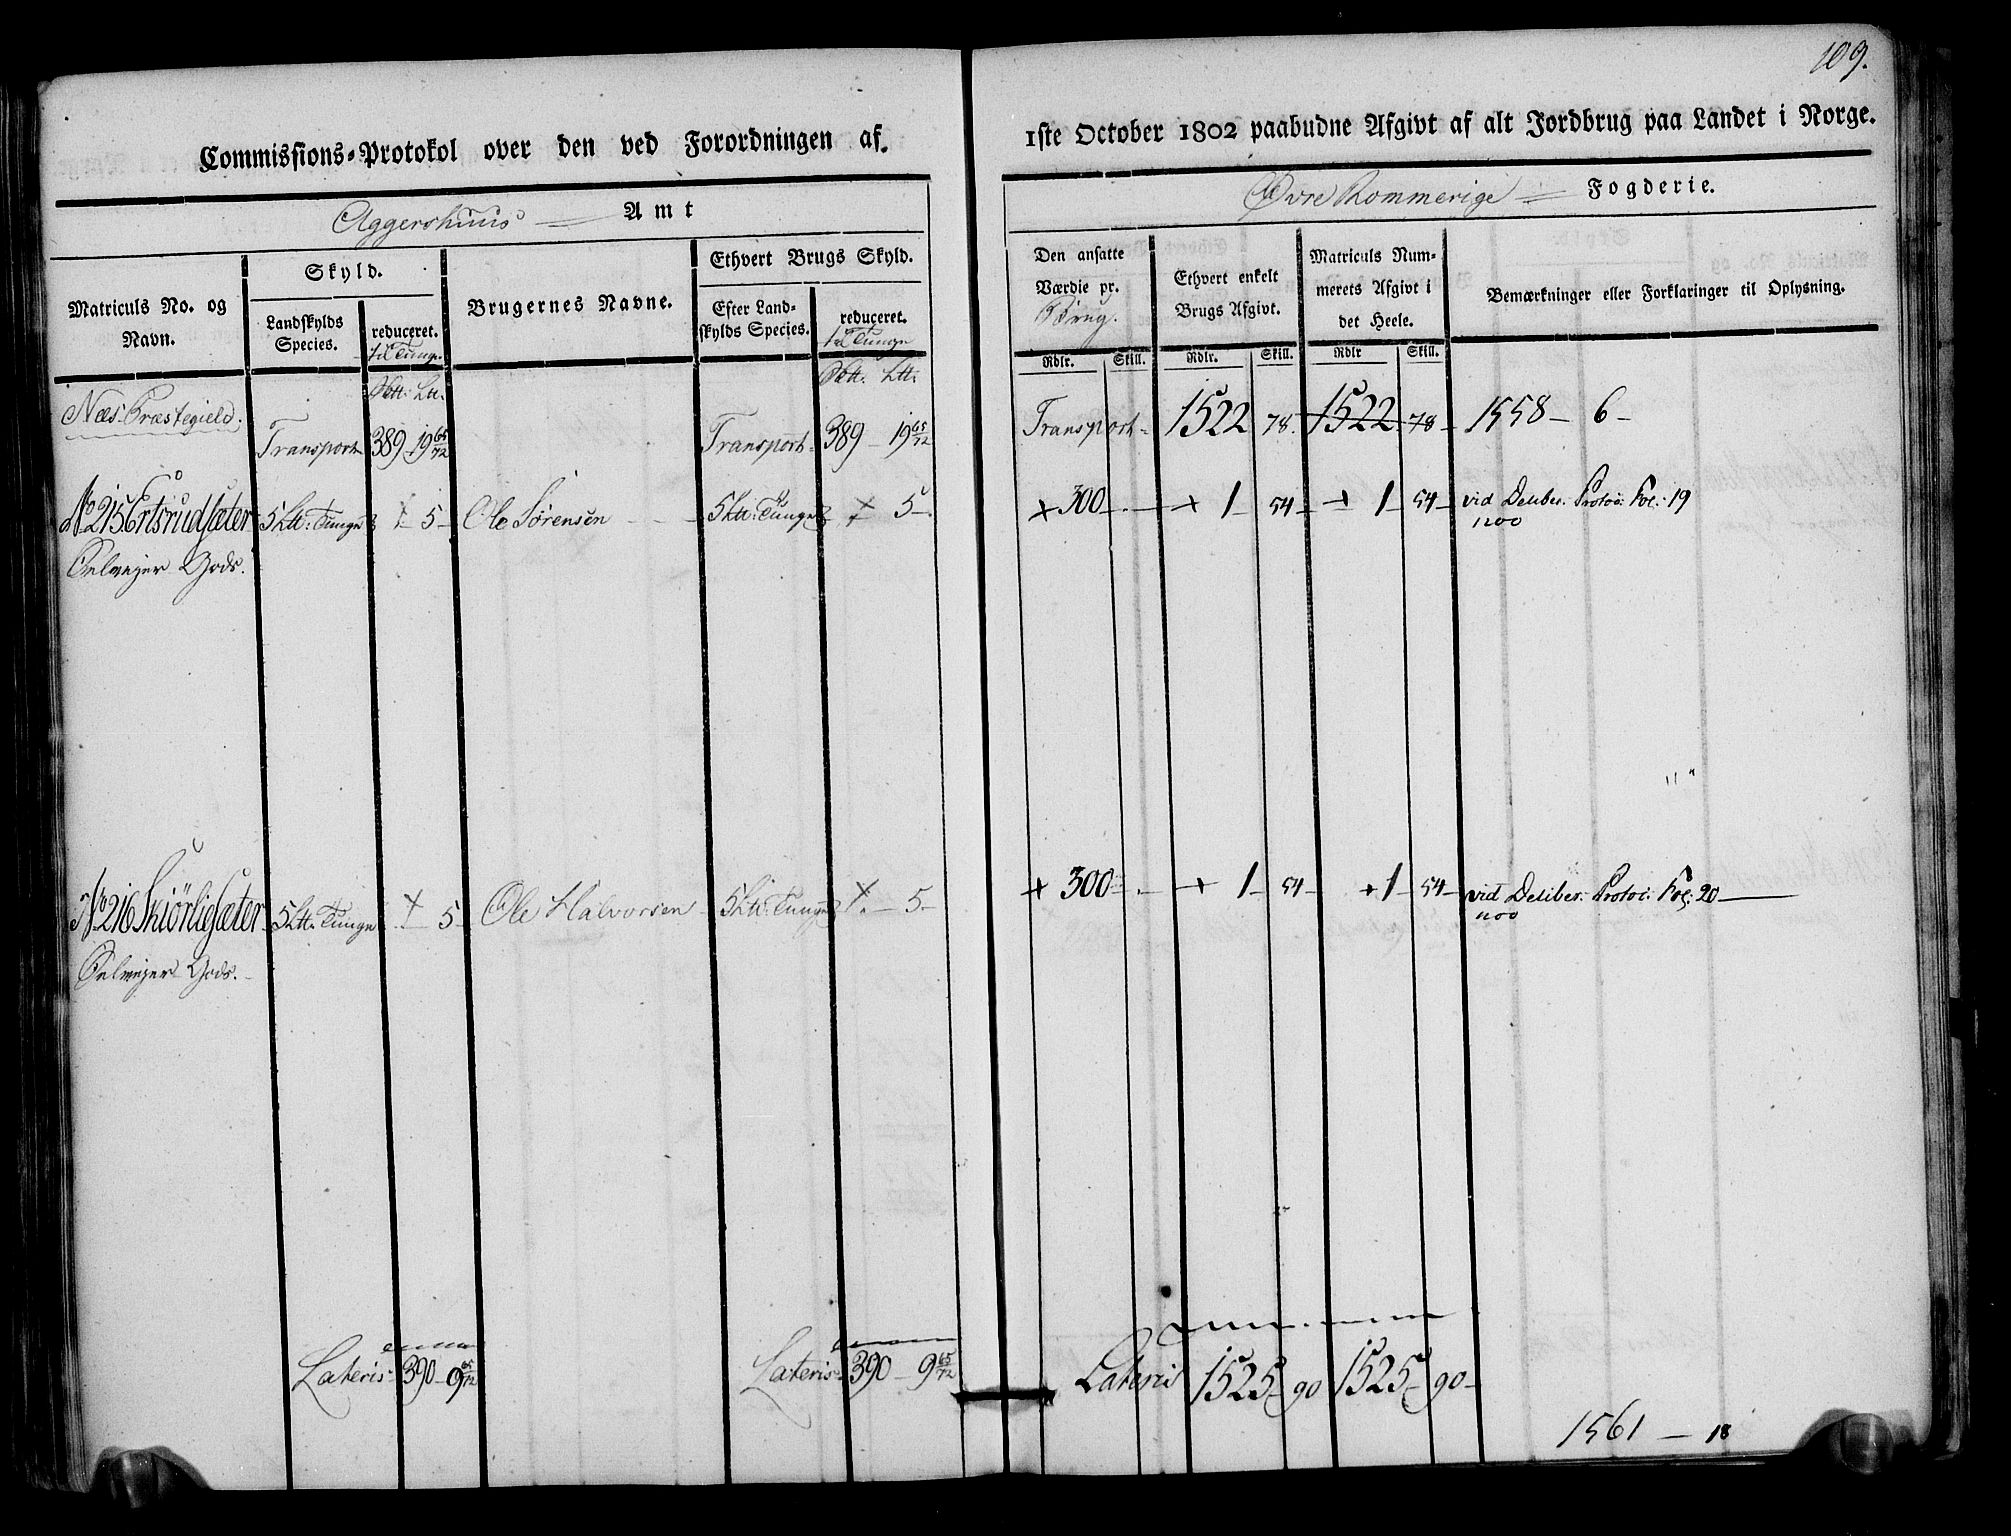 109.
Commissions-Protokol over den ved Forordningen af.
1ste October 1802 paabudne Afgivt af alt Jordbrug paa Landet i Norge.
Aggershuus Amt
Øvre Rommerige Fogderie.
Matriculs No. og Navn.
Skyld.
Landskylds Species.
reduceret. til Tunge.
Brugernes Navne.
Ethvert Brugs Skyld.
Efter Landskylds Species.
reduceret. til Tunge
Den ansatte Værdie pr. Brug.
Ethvert enkelt Brugs Afgivt.
Matriculs Nummerets Afgivt i det Heele.
Bemærkninger eller Forklaringer til Oplysning.
Rdlr. Skill. Rdlr. Skill. Rdlr Skill.
Næs Præstegield.
Transport 389 - 19 65/72 Transport 389 - 19 65/72 Transport 1522 78. 1522 78 1558 - 6 -
No 215 Ertsrudsæter 5 Ltt: Tunge + 5 - Ole Sørensen 5 Ltt: Tunge + 5 - + 300 + 1 - 54 - + 1 54 - vid Deliber: Protoc: Fol: 19
Gods.
No 216 Skiörligsæter 5 Ltt: Tunge + 5 - Ole Halvorsen 5 Ltt: Tunge + 5 - + 300 + 1 - 54 - + 1 - 54 - vid Deliber: Protoc: Fol: 20
Gods.
Lateris 390 - 9 65/72 Lateris 390 - 9 65/72 Lateris 1525 - 90 1525 - 90 -
1561 - 18